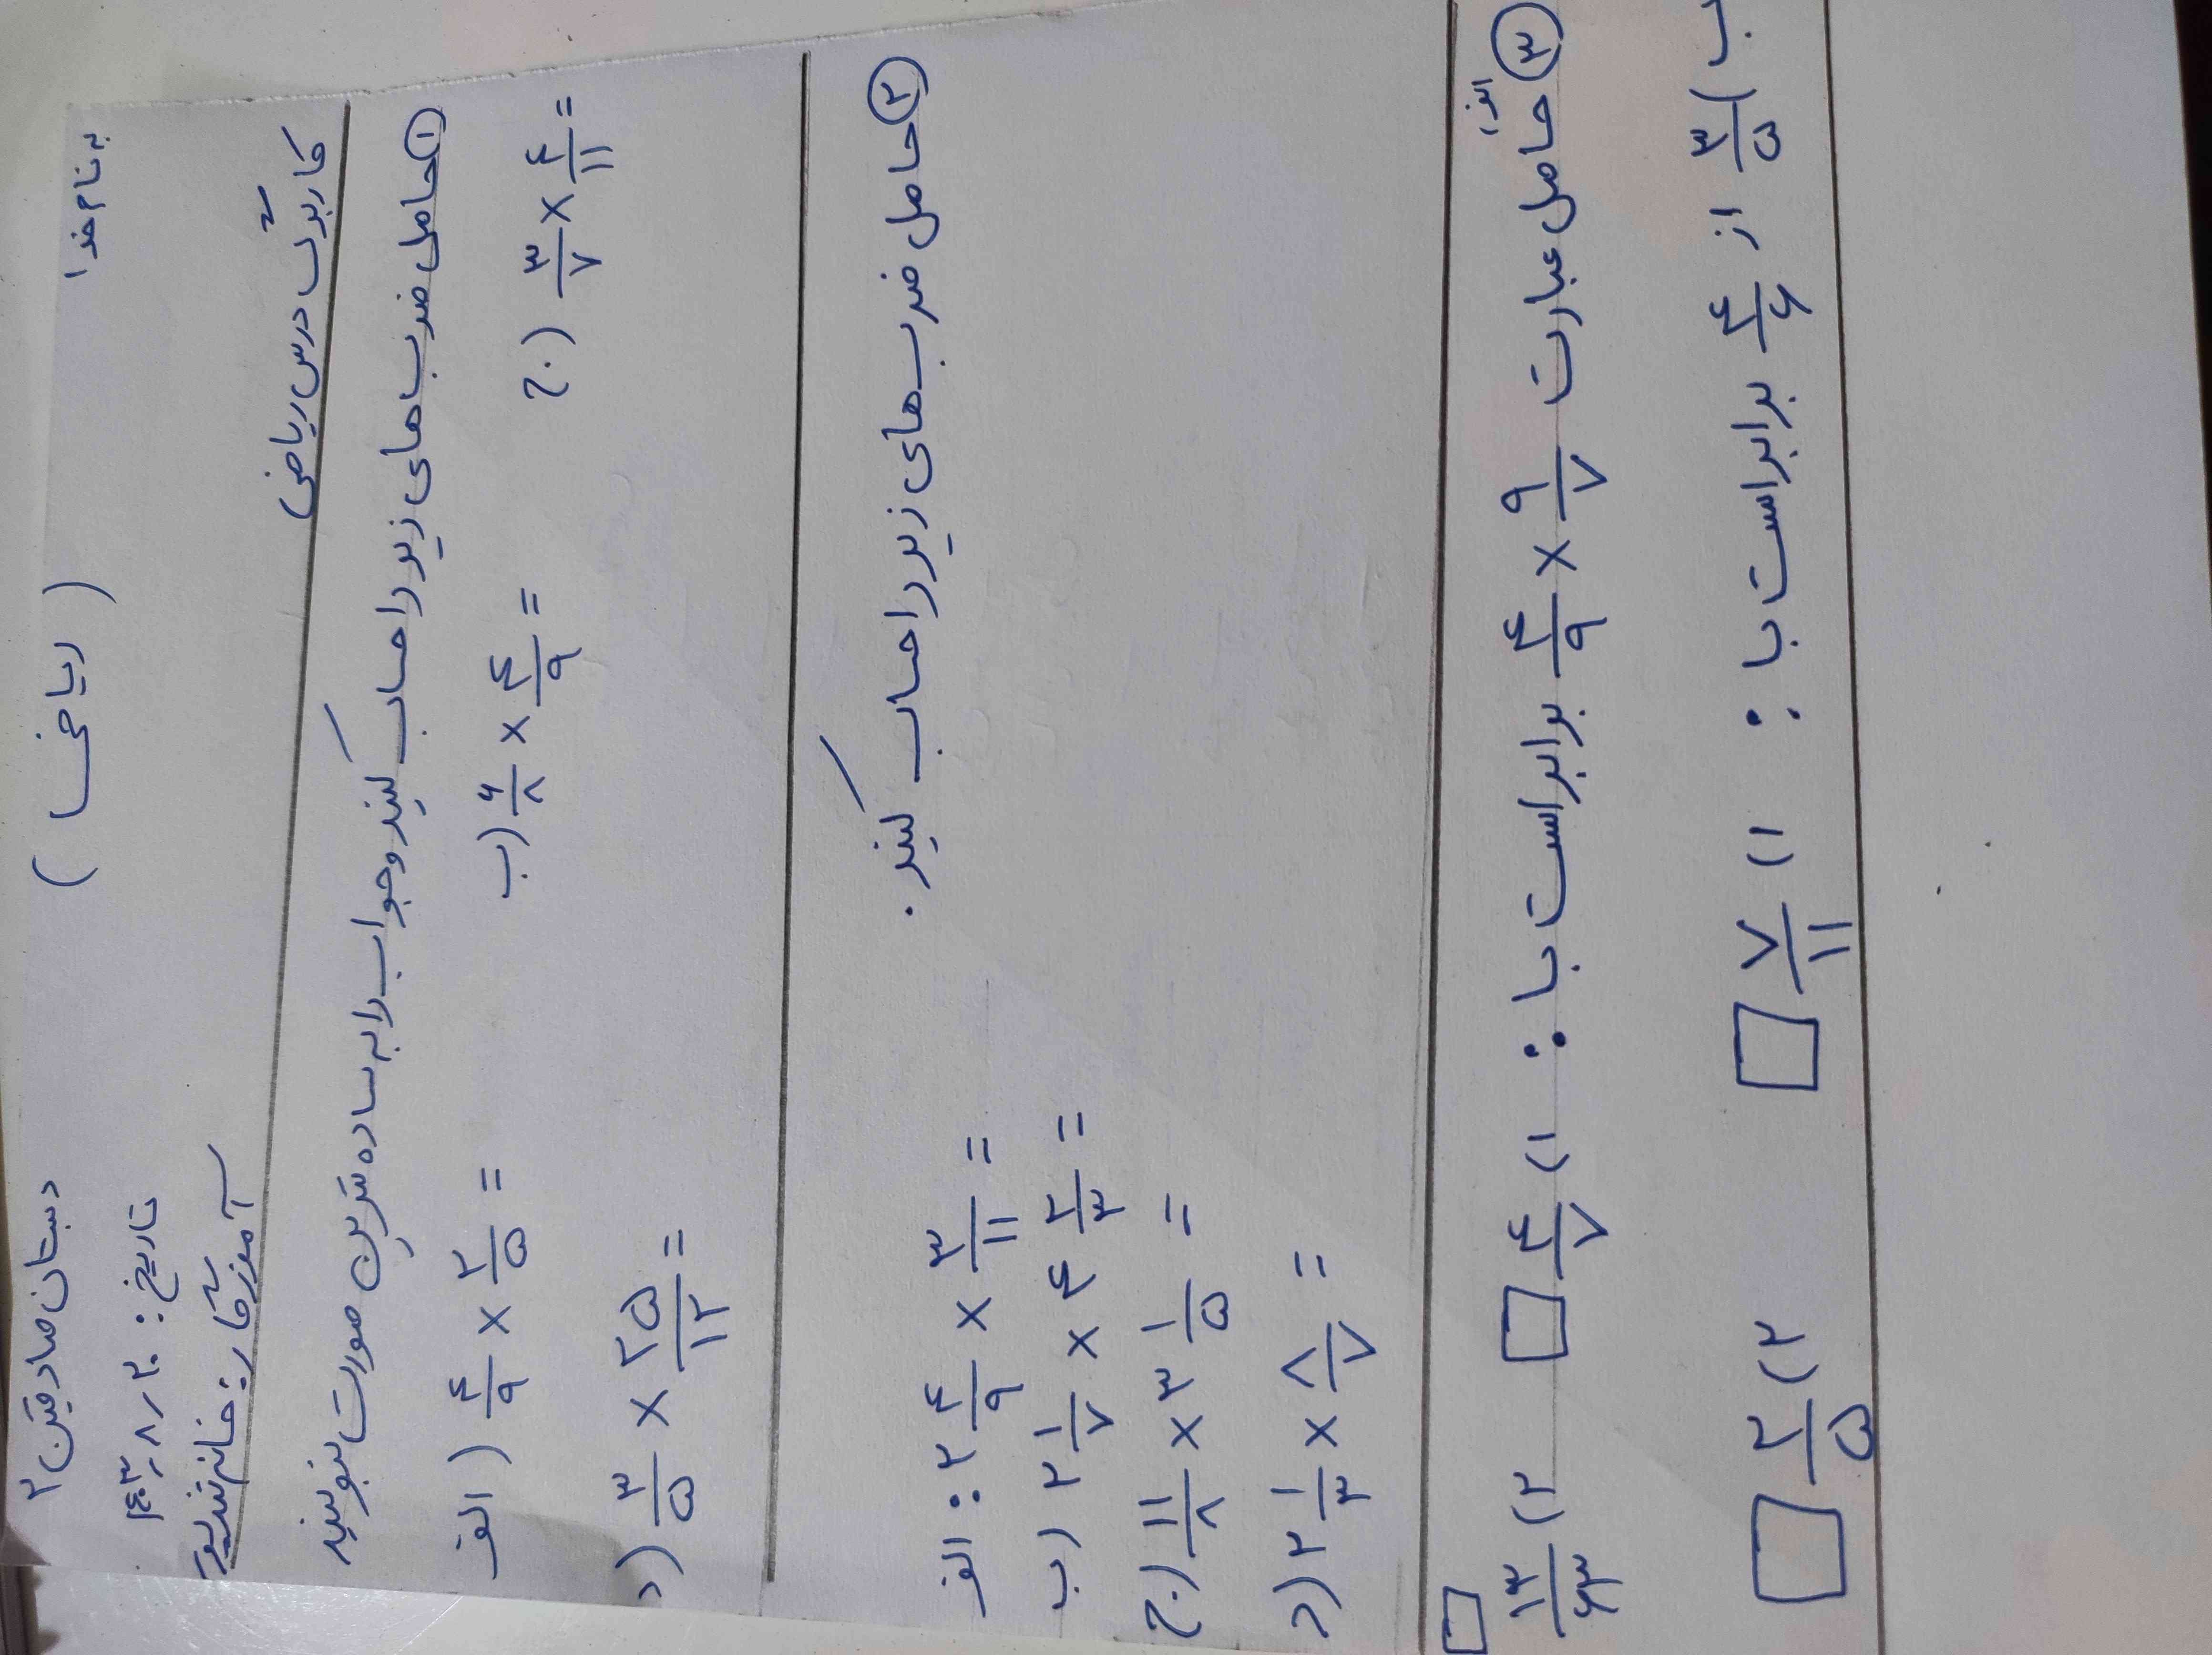 به نام خدا ( ریاضی ) دبستان صادقین ۲
تاریخ: ۱۴۰۳٫۸٫۲۰
کاربرگ درس ریاضی آموزگار: خانم
① حاصل ضرب های زیر را حساب کنید و جواب را به ساده ترین صورت بنویسید
الف) ۴/۹ × ۲/۵ = ب) ۶/۸ × ۴/۹ = ج) ۳/۷ × ۴/۱۱ =
د) ۳/۵ × ۲۵/۱۲ =
② حاصل ضرب های زیر را حساب کنید.
الف: ۲ ۴/۹ × ۳/۱۱ =
ب) ۲ ۱/۷ × ۴ ۲/۳ =
ج) ۱۱/۸ × ۳ ۱/۵ =
د) ۲ ۱/۳ × ۸/۷ =
③ الف) حاصل عبارت ۹/۷ × ۴/۹ برابر است با : ۱) ۴/۷ □ ۲) ۱۳/۶۳ □
ب) ۳/۵ از ۴/۶ برابر است با : ۱) ۷/۱۱ □ ۲) ۲/۵ □